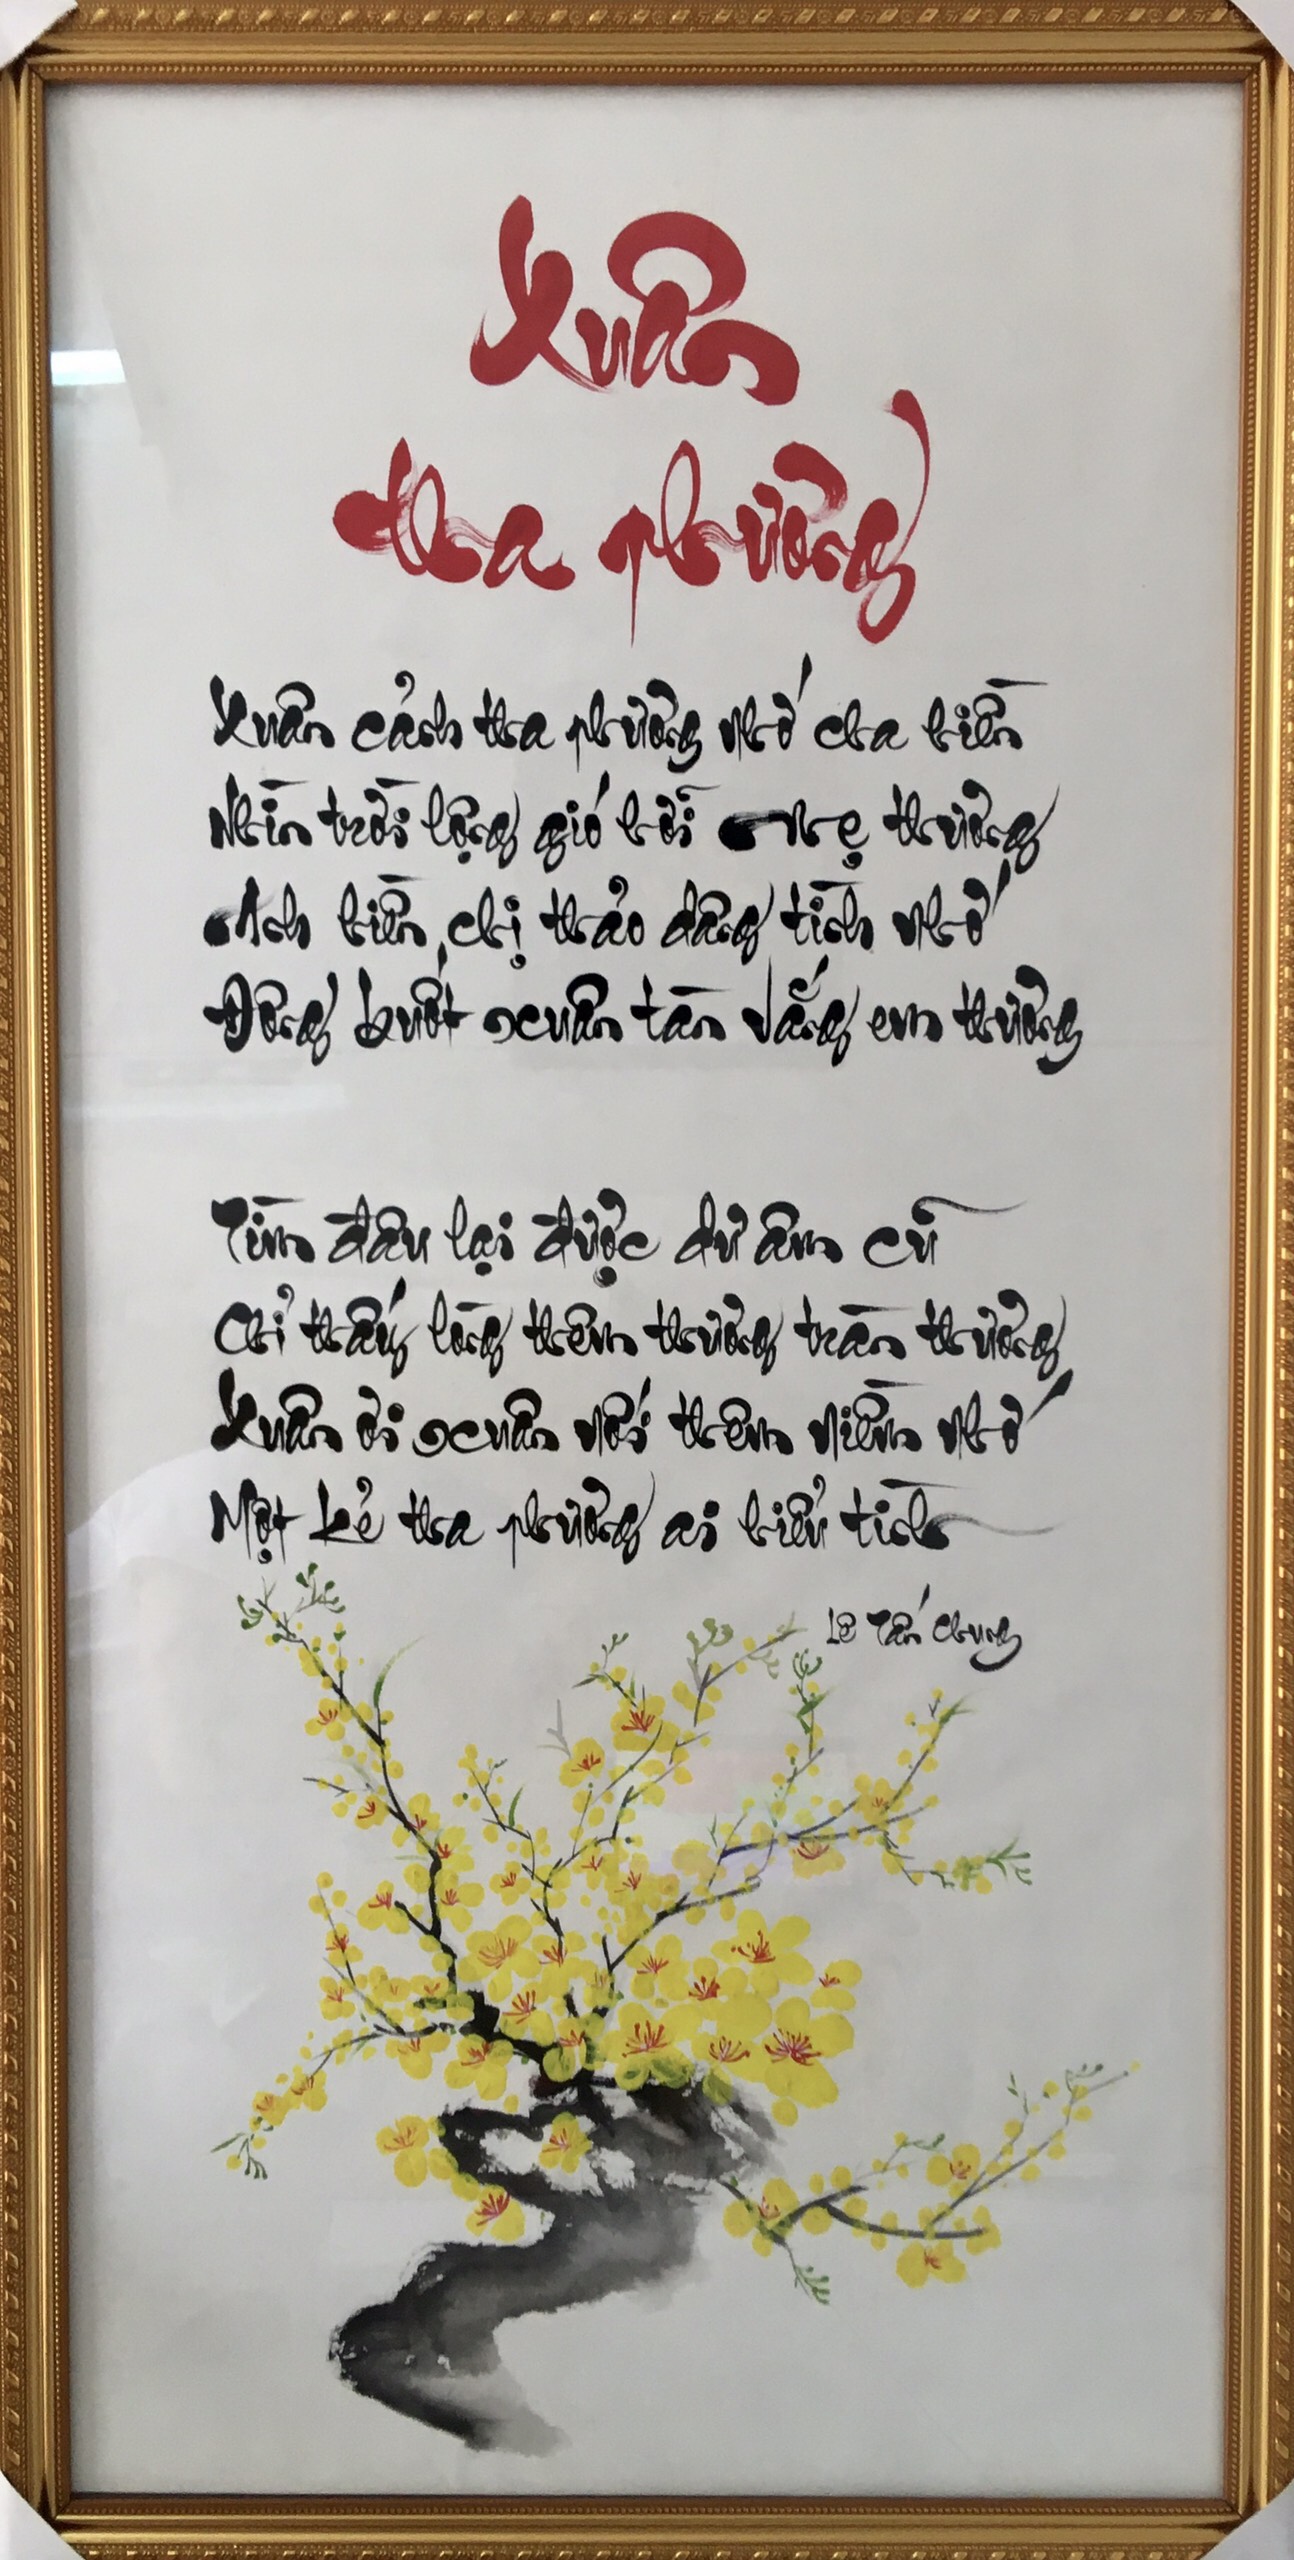 Xuân
tha phương
Xuân cảnh tha phương nhớ cha hiền
Nhìn trời lộng gió hỡi mẹ thương
Anh hiền, chị thảo dâng tình nhớ
Đông buốt xuân tàn vắng em thương
Tìm đâu lại được dư âm cũ
Chỉ thấy lòng thêm thương trăn thương
Xuân ơi xuân với thêm niềm nhớ
Một kẻ tha phương ai hiểu tình
Lê Tấn Chung